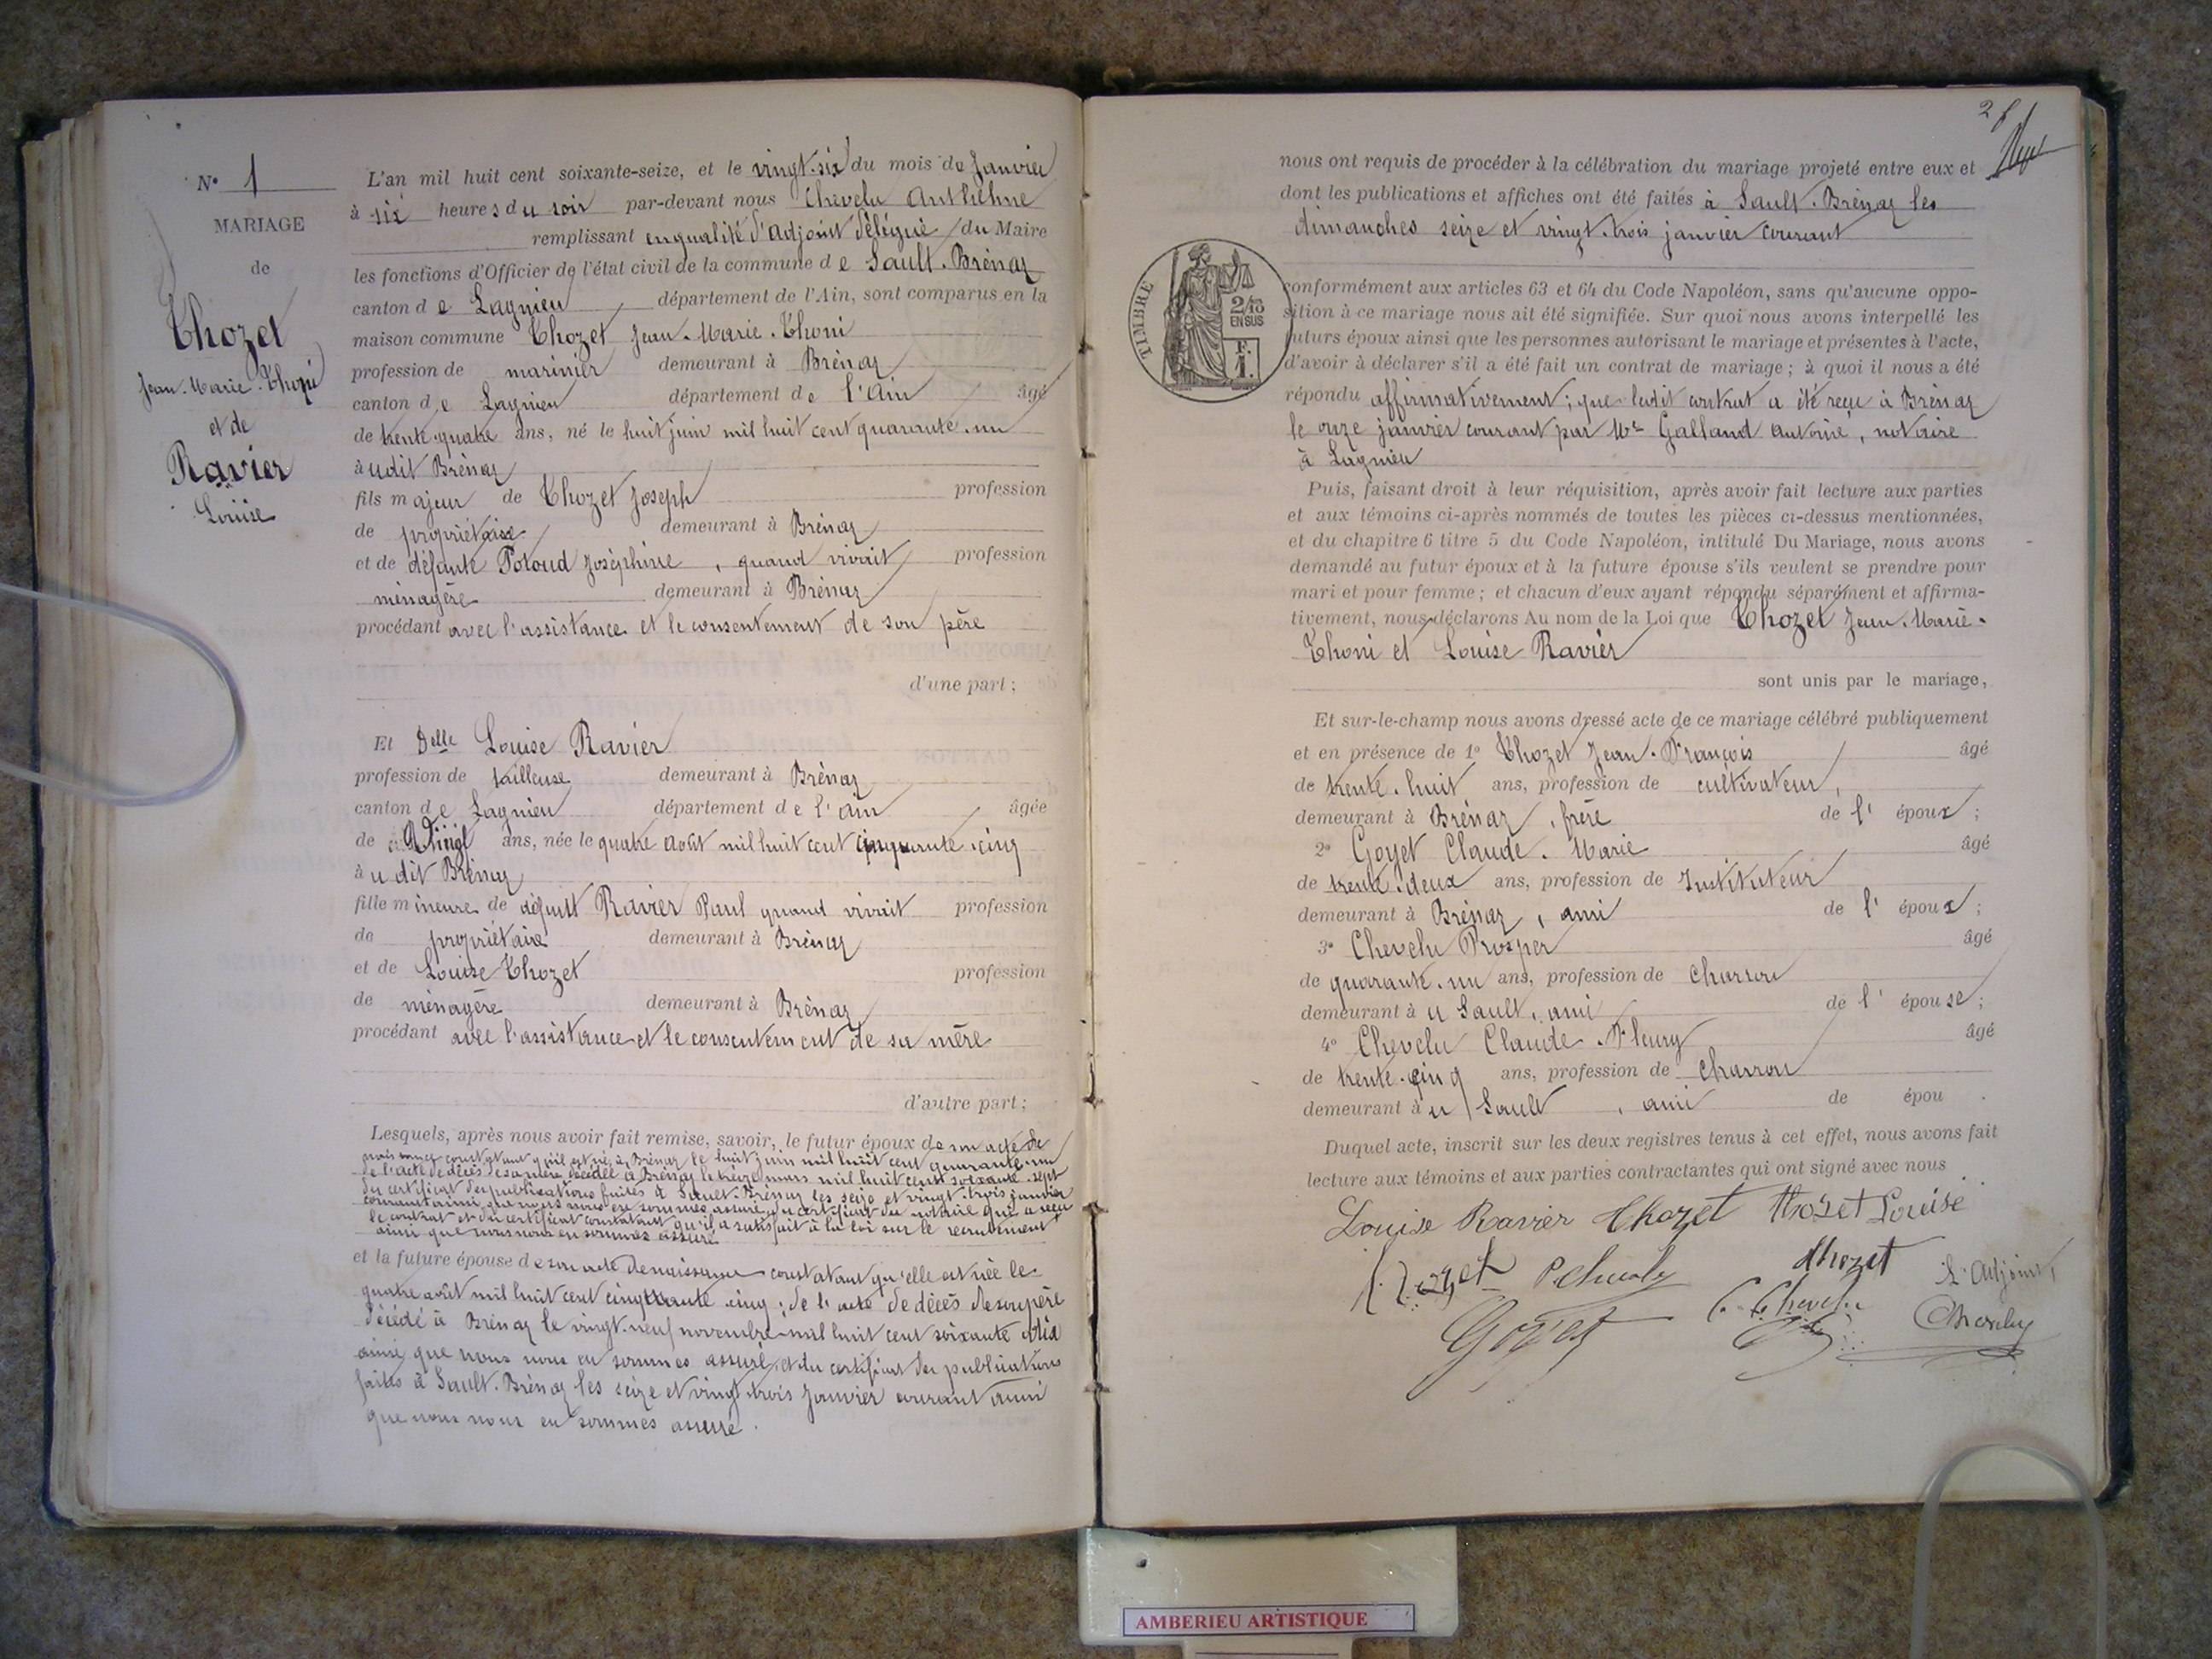 N° 1
MARIAGE
de
Thozet
Jean-Marie-Thoni
et de
Ravier
Louise
L'an mil huit cent soixante-seize, et le vingt-six du mois de Janvier
à six heures du soir par-devant nous Chevelu Anthelme
remplissant en qualité d'adjoint délégué du Maire
les fonctions d'Officier de l'état civil de la commune de Sault-Brénaz
canton de Lagnieu département de l'Ain, sont comparus en la
maison commune Thozet Jean-Marie-Thoni
profession de marinier demeurant à Brénaz
canton de Lagnieu département de l'Ain âgé
de trente-quatre ans, né le huit juin mil huit cent quarante-un
à udit Brénaz
fils majeur de Thozet Joseph profession
de propriétaire demeurant à Brénaz
et de défunte Poloud Joséphine, quand vivait profession
ménagère demeurant à Brénaz
procédant avec l'assistance et le consentement de son père
d'une part;
Et Delle Louise Ravier
profession de tailleuse demeurant à Brénaz
canton de Lagnieu département de l'Ain âgée
de Vingt ans, née le quatre août mil huit cent cinquante-cinq
à udit Brénaz
fille mineure de défunt Ravier Paul quand vivait profession
de propriétaire demeurant à Brénaz
et de Louise Thozet profession
de ménagère demeurant à Brénaz
procédant avec l'assistance et le consentement de sa mère
d'autre part;
Lesquels, après nous avoir fait remise, savoir, le futur époux de son acte de
naissance constatant qu'il est né à Brénaz le huit juin mil huit cent quarante-un
de l'acte de décès de sa mère décédée à Brénaz le treize mars mil huit cent soixante-sept
du certificat des publications faites à Sault-Brénaz les seize et vingt-trois janvier
courant ainsi que nous nous en sommes assuré, du certificat du notaire qui a reçu
le contrat et du certificat constatant qu'il a satisfait à la loi sur le recrutement
ainsi que nous nous en sommes assuré
et la future épouse de son acte de naissance constatant qu'elle est née le
quatre août mil huit cent cinquante-cinq; de l'acte de décès de son père
décédé à Brénaz le vingt-neuf novembre mil huit cent soixante-dix
ainsi que nous nous en sommes assuré, et du certificat des publications
faites à Sault-Brénaz les seize et vingt-trois Janvier courant ainsi
que nous nous en sommes assuré.
28
nous ont requis de procéder à la célébration du mariage projeté entre eux et
dont les publications et affiches ont été faites à Sault-Brénaz les
dimanches seize et vingt-trois janvier courant
TIMBRE
2/10
EN SUS
F.
1.
conformément aux articles 63 et 64 du Code Napoléon, sans qu'aucune oppo-
sition à ce mariage nous ait été signifiée. Sur quoi nous avons interpellé les
futurs époux ainsi que les personnes autorisant le mariage et présentes à l'acte,
d'avoir à déclarer s'il a été fait un contrat de mariage; à quoi il nous a été
répondu affirmativement; que ledit contrat a été reçu à Brénaz
le onze janvier courant par Me Galland Antoine, notaire
à Lagnieu
Puis, faisant droit à leur réquisition, après avoir fait lecture aux parties
et aux témoins ci-après nommés de toutes les pièces ci-dessus mentionnées,
et du chapitre 6 titre 5 du Code Napoléon, intitulé Du Mariage, nous avons
demandé au futur époux et à la future épouse s'ils veulent se prendre pour
mari et pour femme; et chacun d'eux ayant répondu séparément et affirma-
tivement, nous déclarons Au nom de la Loi que Thozet Jean-Marie-
Thoni et Louise Ravier
sont unis par le mariage,
Et sur-le-champ nous avons dressé acte de ce mariage célébré publiquement
et en présence de 1° Thozet Jean-François âgé
de trente-huit ans, profession de cultivateur,
demeurant à Brénaz, frère de l'époux;
2° Goyet Claude-Marie âgé
de trente-deux ans, profession de Instituteur
demeurant à Brénaz, ami de l'époux;
3° Chevelu Prosper âgé
de quarante-un ans, profession de Charron
demeurant à u Sault, ami de l'épouse;
4° Chevelu Claude-Fleury âgé
de trente-cinq ans, profession de Charron
demeurant à u Sault, ami de épou .
Duquel acte, inscrit sur les deux registres tenus à cet effet, nous avons fait
lecture aux témoins et aux parties contractantes qui ont signé avec nous
Louise Ravier Thozet Thozet Louise
Thozet P Chevelu Thozet L'Adjoint,
Goyet C. Chevelu Chevelu
AMBERIEU ARTISTIQUE